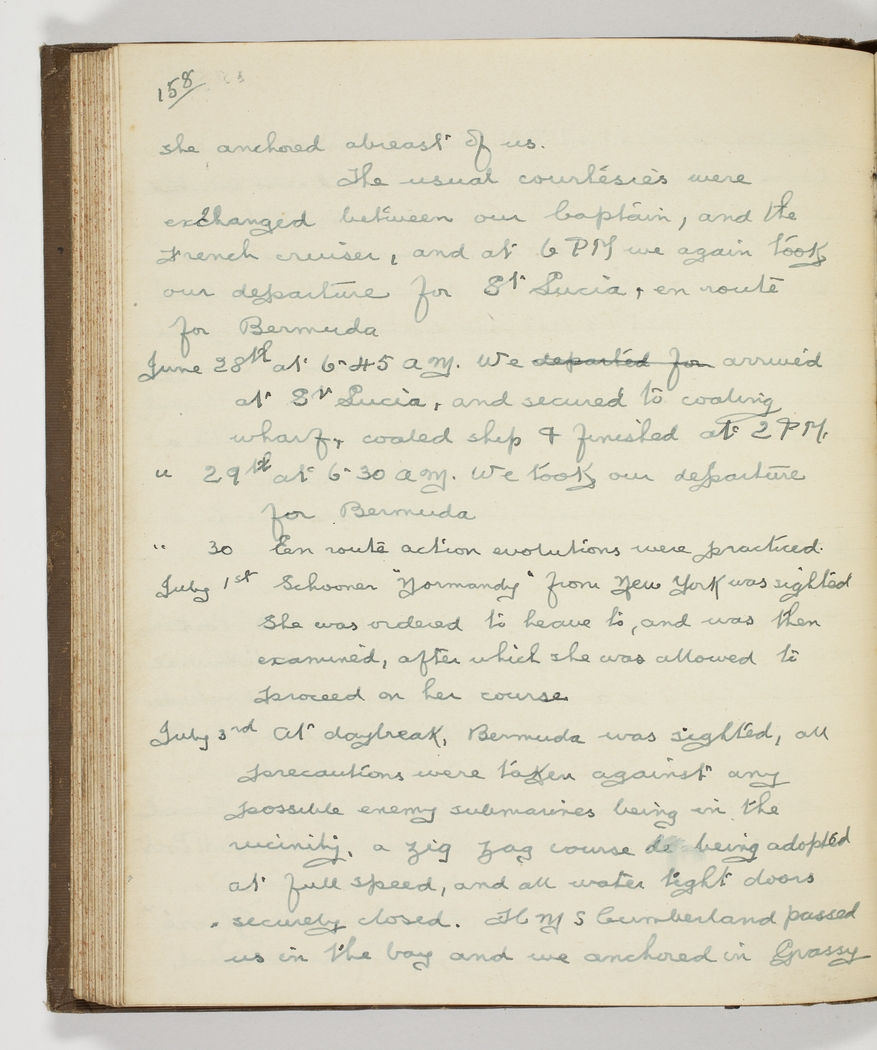 158
she anchored abreast of us.
The usual courtesies were
exchanged between our Captain, and the
French cruiser, and at 6 PM we again took
our departure for St Lucia, en route
for Bermuda
June 28th at 6-45 a.m. We departed for arrived
at St Lucia, and secured to coaling
wharf, coaled ship & finished at 2 PM.
" 29th at 6-30 a.m. We took our departure
for Bermuda
" 30 Een route action evolutions were practiced.
July 1st Schooner "Normandy" from New York was sighted
She was ordered to heave to, and was then
examined, after which she was allowed to
proceed on her course
July 3rd At daybreak, Bermuda was sighted, all
precautions were taken against any
possible enemy submarines being in the
vicinity, a zig zag course de being adopted
at full speed, and all water tight doors
securely closed. H M S Cumberland passed
us in the bay and we anchored in Grassy